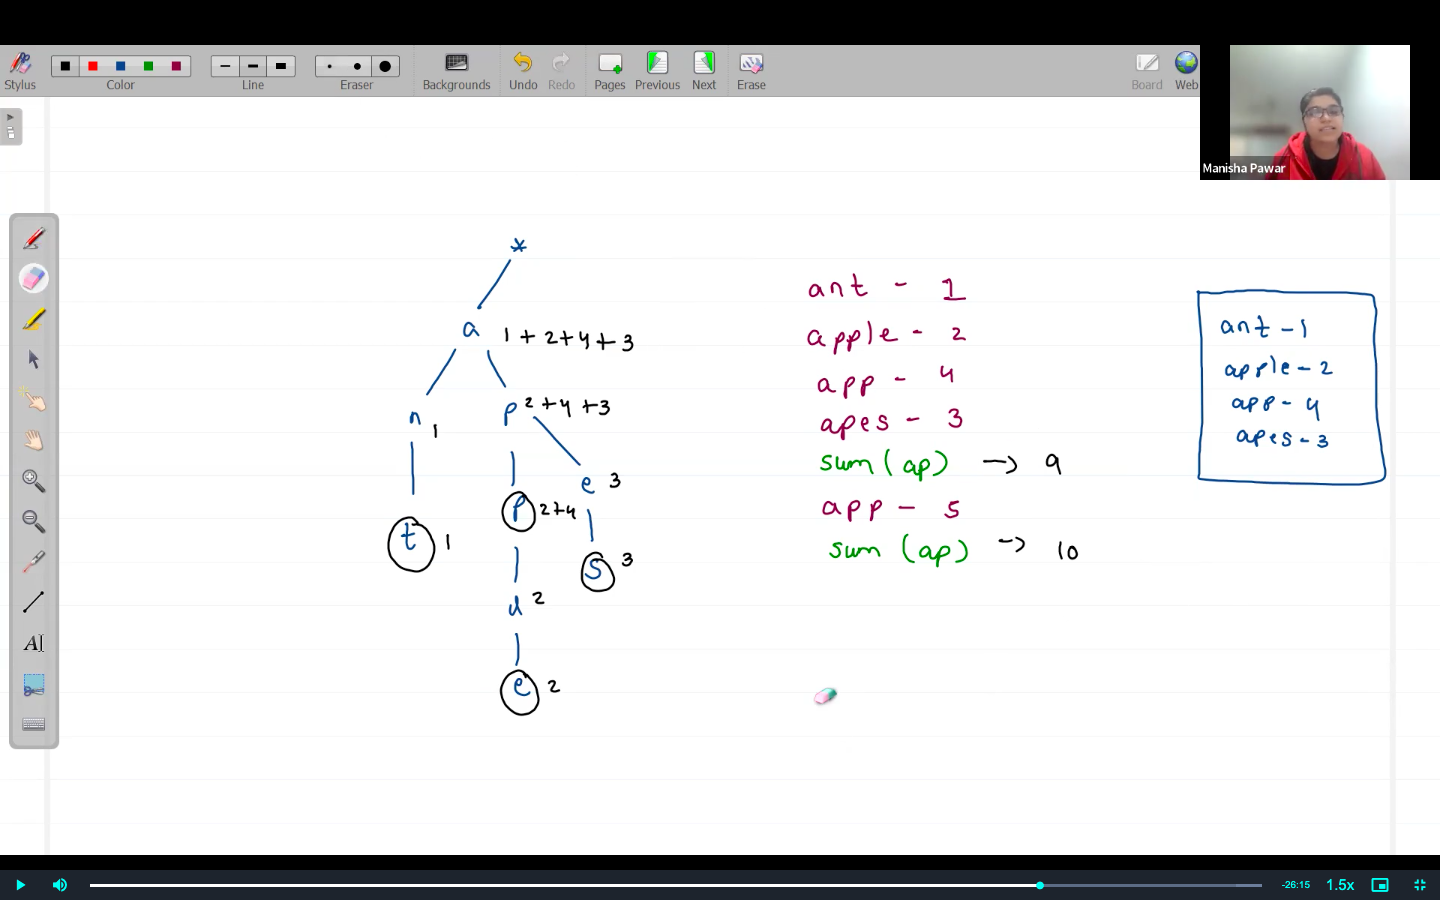 Stylus
Color
Line
Eraser
Backgrounds
Undo
Redo
Pages
Previous
Next
Erase
Board
Web
Manisha Pawar
*
a 1 + 2+4+3
n 1
p 2+4+3
t 1
p 2+4
e 3
s 3
l 2
e 2
ant - 1
apple - 2
app - 4
apes - 3
sum(ap) -> 9
app - 5
sum (ap) -> 10
ant - 1
apple - 2
app - 4
apes - 3
A
-26:15
1.5x